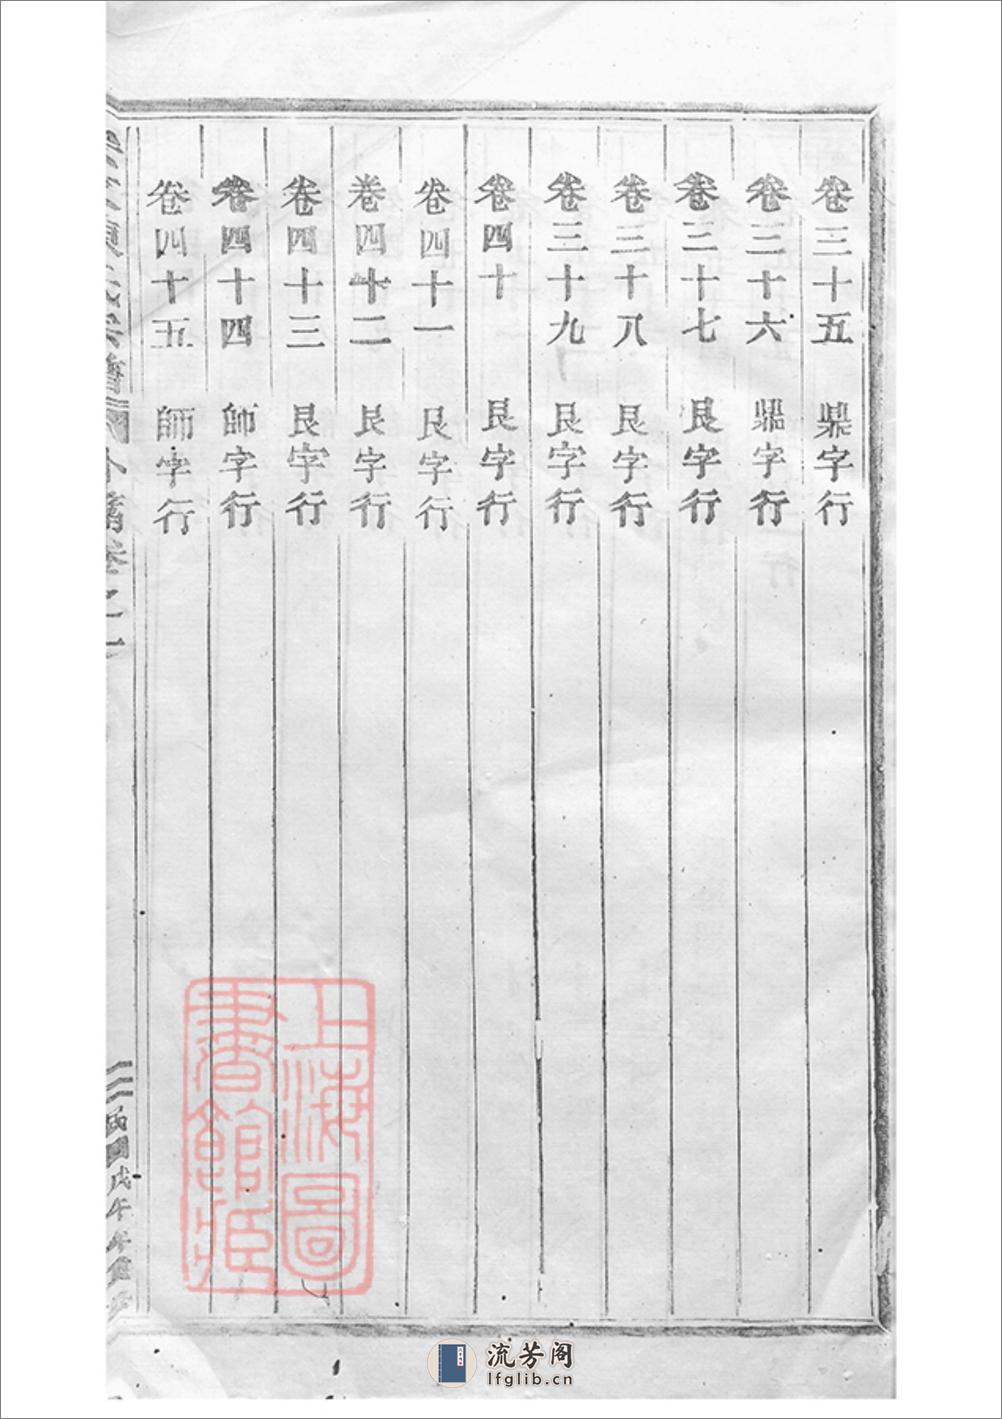 卷三十五 鼎字行
卷三十六 鼎字行
卷三十七 艮字行
卷三十八 艮字行
卷三十九 艮字行
卷四十 艮字行
卷四十一 艮字行
卷四十二 艮字行
卷四十三 艮字行
卷四十四 師字行
卷四十五 師字行
卷之一
戊午年重修
上海圖書館藏
流芳阁
lfglib.cn